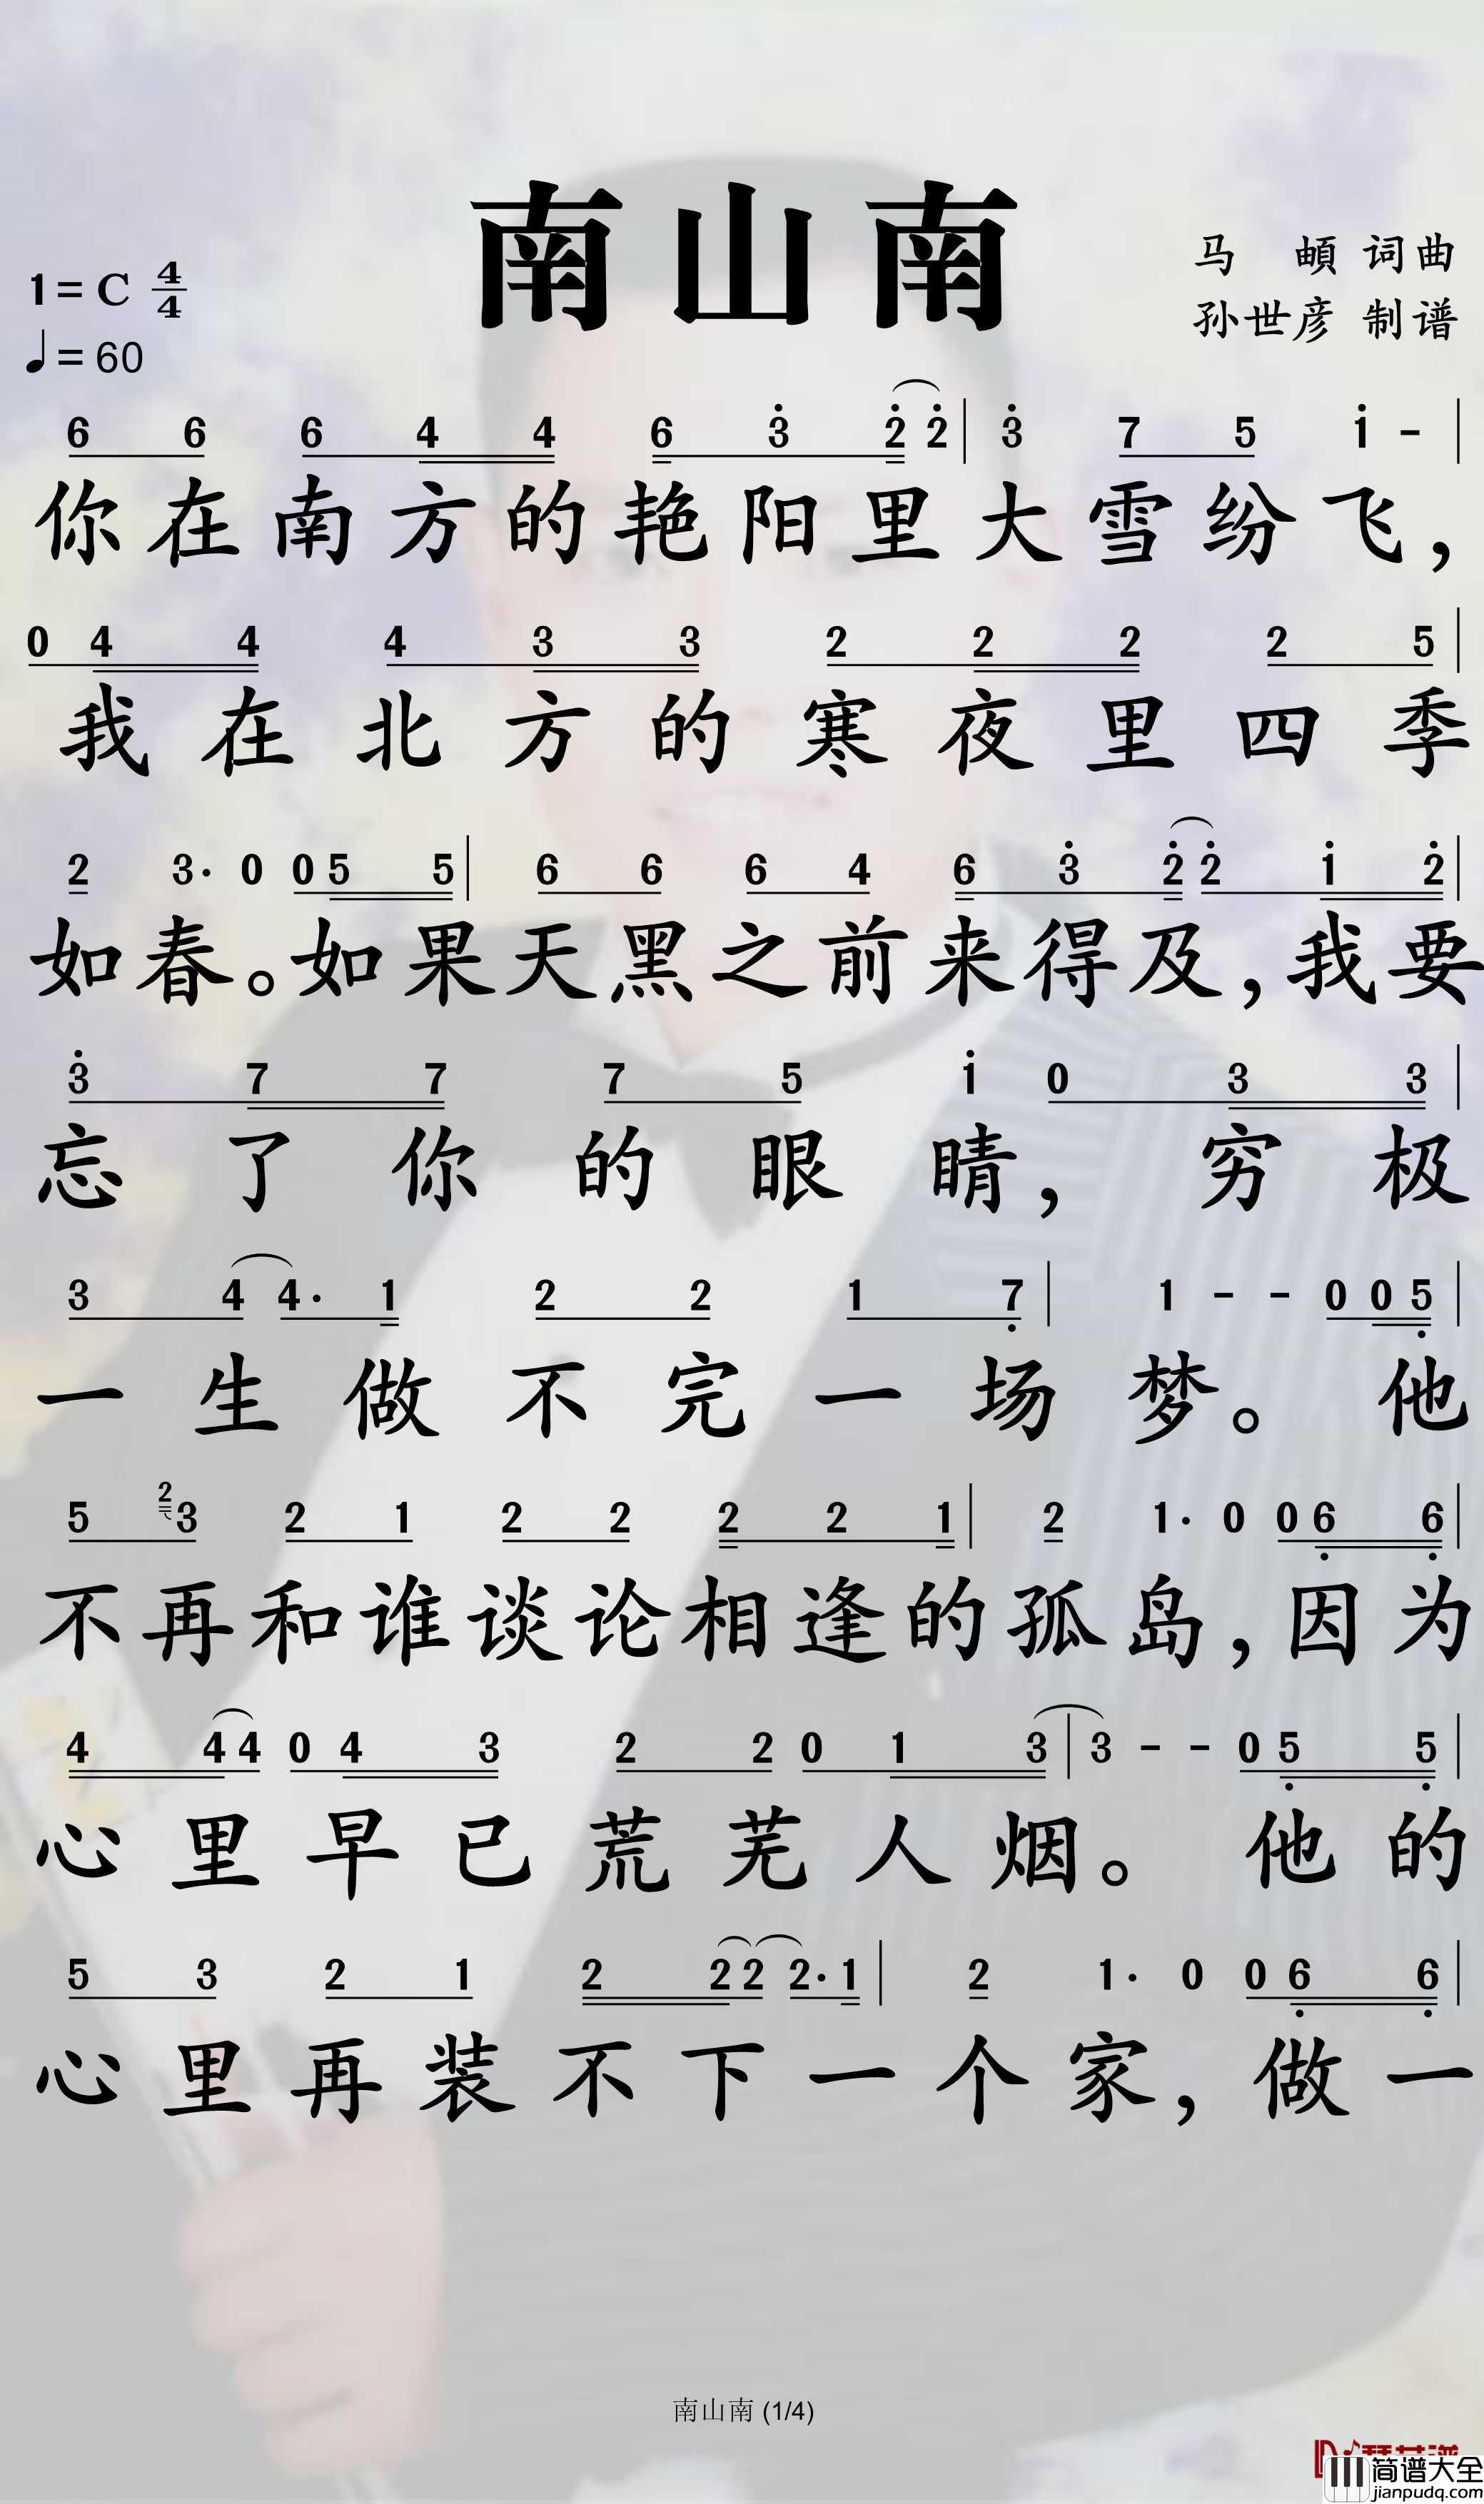 南山南
马 頔 词曲
1=C 4/4
孙世彦 制谱
♩=60
6 6 6 4 4 6 3̇ 2̇ 2̇ | 3̇ 7 5 1̇ - |
你在南方的艳阳里大雪纷飞，
0 4 4 4 3 3 2 2 2 2 5 |
我在北方的寒夜里四季
2 3· 0 0 5 5 | 6 6 6 4 6 3̇ 2̇ 2̇ 1̇ 2̇ |
如春。如果天黑之前来得及，我要
3̇ 7 7 7 5 1̇ 0 3 3 |
忘了你的眼睛，穷极
3 4 4· 1 2 2 1 7̣ | 1 - - 0 0 5̣ |
一生做不完一场梦。他
5 2 3 2 1 2 2 2 2 1 | 2 1· 0 0 6̣ 6̣ |
不再和谁谈论相逢的孤岛，因为
4 4 4 0 4 3 2 2 0 1 3 | 3 - - 0 5̣ 5̣ |
心里早已荒芜人烟。他的
5 3 2 1 2 2 2 2· 1 | 2 1· 0 0 6̣ 6̣ |
心里再装不下一个家，做一
南山南 (1/4)
简谱大全
jianpudq.com